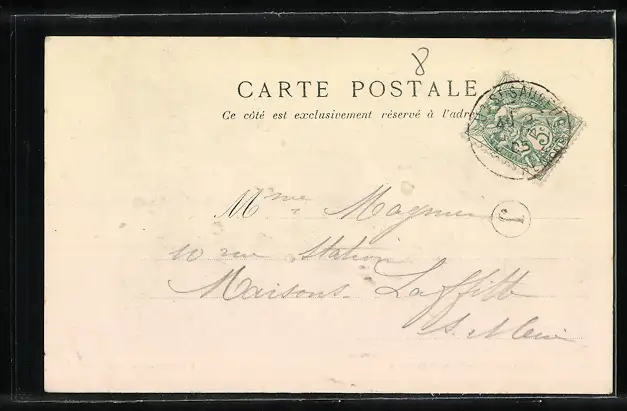 8
CARTE POSTALE
Ce côté est exclusivement réservé à l'adre
5
J
Mme Magnier
10 rue Station
Maisons-Laffitte
S.